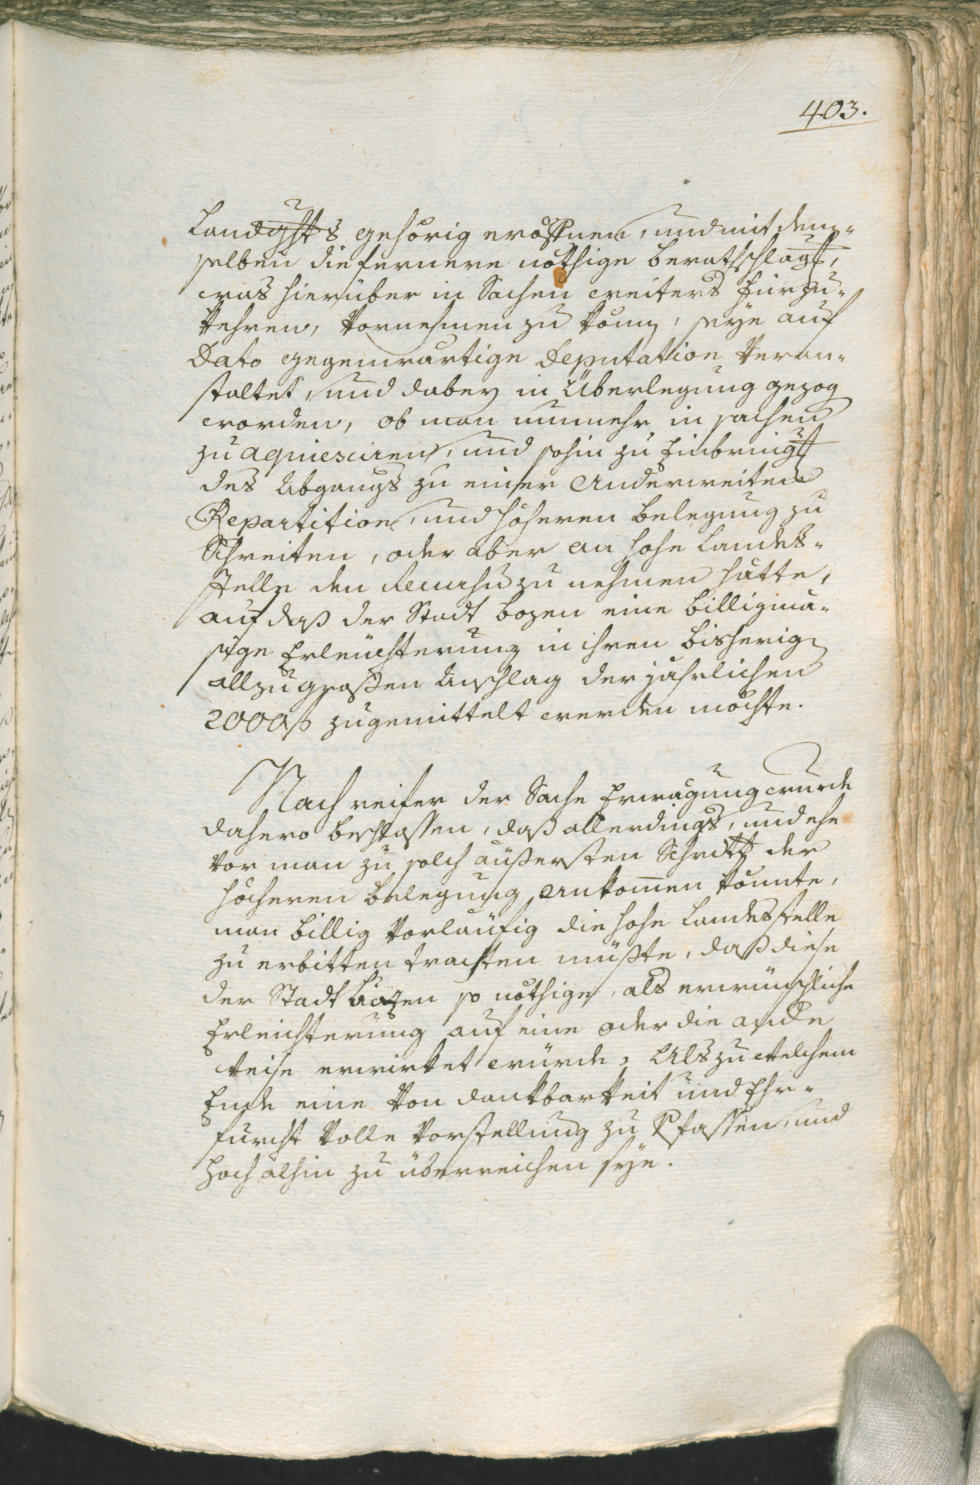 403.
Landghts gehörig eröffnen, und mit dem-
selben die fernere nöthige berathschlagg,
was hierüber in Sachen weiters fürzu-
kehren, vornehmen zu könn, seÿe auf
Dato gegenwärtige Deputation veran-
staltet, und dabeÿ in Überlegung gezog
worden, ob man nunmehr in sachen
zu aquiesciren, und sohin zu Einbringg
des Abgangs zu einer Anderweiten
Repartition, und höheren belegung zu
Schreiten, oder aber an hohe Landes-
stelle den Recurhs zu nehmen hätte,
auf daß der Stadt bozen eine billigmä-
sige Erleüchterung in ihren bisherig
allzugroßen Anschlag der jährlichen
2000 f zugemittelt werden möchte.
Nach reifer der Sache Erwägung wurde
dahero beschlossen, daß allerdings, und ehe
vor man zu solch äüßersten Schritt der
höcheren belegung ankommen könnte,
man billig vorläüfig die hohe Landesstelle
zu erbitten trachten müßte, daß diese
der Stadt bozen so nöthige, als erwünschliche
Erleichterung auf eine oder die andere
weise erwirket würde, Als zu welchem
Ende eine von dankbarkeit und Ehr-
furcht volle Vorstellung zu Verfassen, und
hoch alhin zu überreichen seÿe.